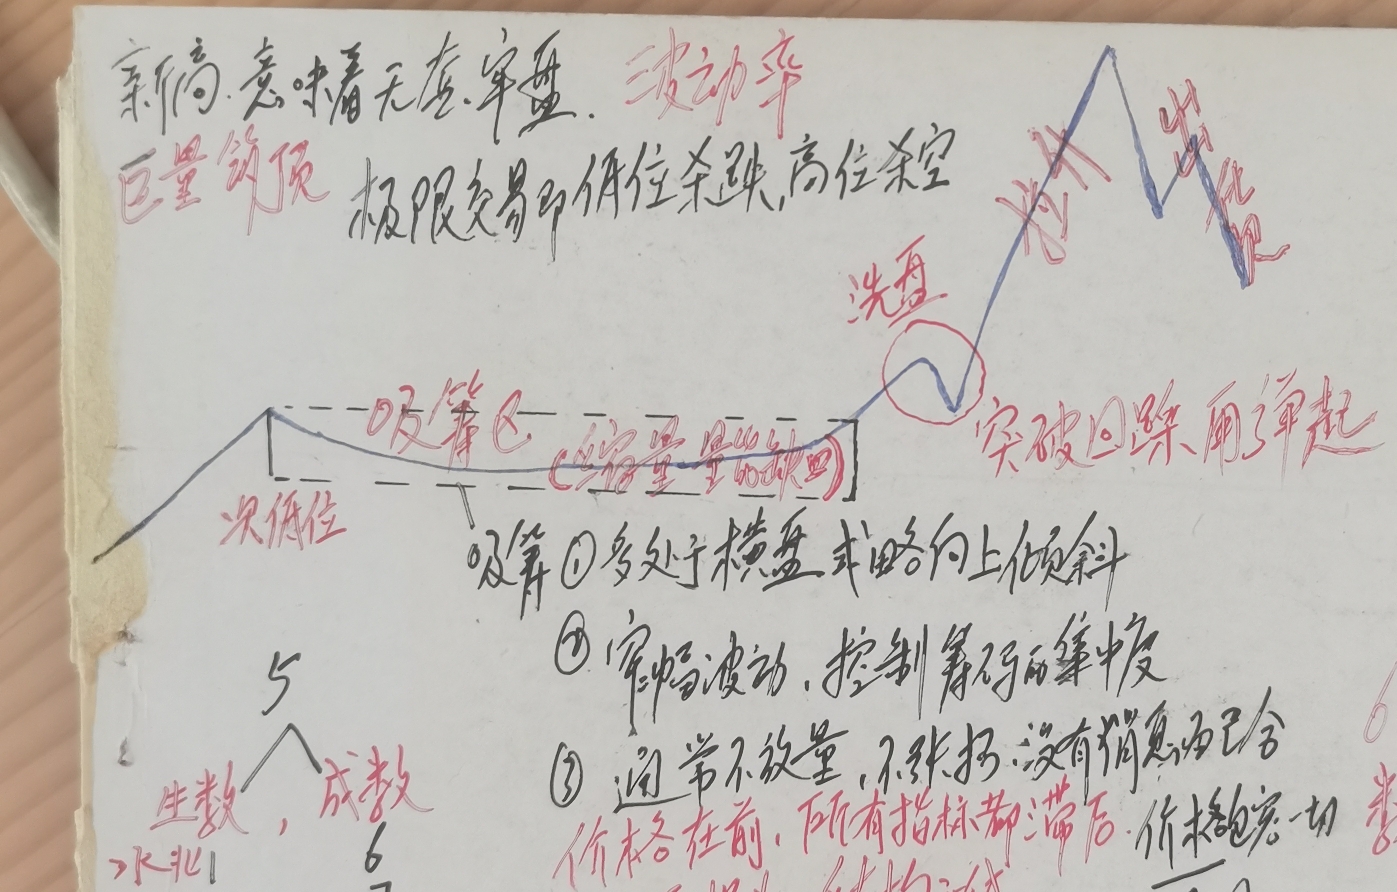 新高.意味着无套牢盘. 波动率
巨量筑顶 极限交易即低位杀跌,高位杀空
拉升
出货
洗盘
吸筹区
(缩量 量的缺口)
突破回踩再弹起
次低位
吸筹①多处于横盘或略向上倾斜
②窄幅波动,控制筹码的集中度
③通常不放量,不张扬.没有消息而已
5
生数, 成数
价格在前,所有指标都滞后.价格包容一切
水北1
6